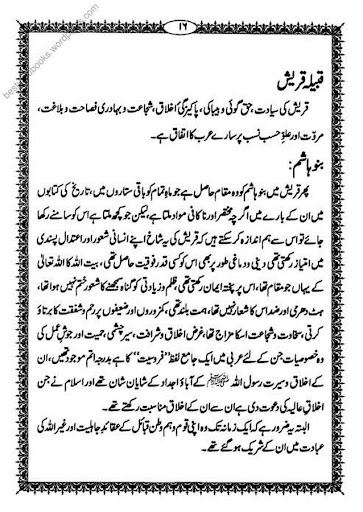 ۱۶
قبیلہ قریش
قریش کی سیادت، حق گوئی و بیباکی، پاکیزگی اخلاق، شجاعت و بہادری فصاحت و بلاغت،
مروّت اور علوِ حسب نسب پر سارے عرب کا اتفاق ہے۔
بنو ہاشم:
پھر قریش میں بنو ہاشم کو وہ مقام حاصل ہے جو ماہِ تمام کو باقی ستاروں میں، تاریخ کی کتابوں
میں ان کے بارے میں اگرچہ مختصر اور ناکافی مواد ملتا ہے، لیکن جو کچھ ملتا ہے اس کو سامنے رکھا
جائے تو اس سے ہم اندازہ کر سکتے ہیں کہ قریش کی یہ شاخ اپنے انسانی شعور اور اعتدال پسندی
میں امتیاز رکھتی تھی، دینی و دماغی طور پر بھی اس کو کسی قدر فوقیت حاصل تھی، بیت اللہ کا اللہ تعالیٰ
کے یہاں جو مقام تھا، اس پر پختہ ایمان رکھتی تھی، ظلم و زیادتی کو گناہ سمجھنے کا شعور ختم نہیں ہوا تھا،
ہٹ دھری اور ضد اس کا شعار نہیں تھا، ہمت بلند تھی، کمزوروں اور ضعیفوں پر رحم و شفقت کا برتاؤ
کرتی، سخاوت و شجاعت اس کا مزاج تھا، غرض اخلاق و شرافت، سیر چشمی، حمیت اور جوشِ عمل کی
وہ خصوصیات جن کے لئے عربی میں ایک جامع لفظ "فروسیت" کا ہے بدرجہ اتم موجود تھیں، ان
کے اخلاق و سیرت رسول اللہ ﷺ کے آباؤ اجداد کے شایان شان تھے اور اسلام نے جن
اخلاق عالیہ کی دعوت دی ہے ان سے ان کے اخلاق مناسبت رکھتے تھے۔
البتہ یہ ضرور ہے کہ ایک زمانہ تک وہ اپنی قوم و ہم وطن قبائل کے عقائدِ جاہلیت اور غیر اللہ کی
عبادت میں ان کے شریک ہو گئے تھے۔